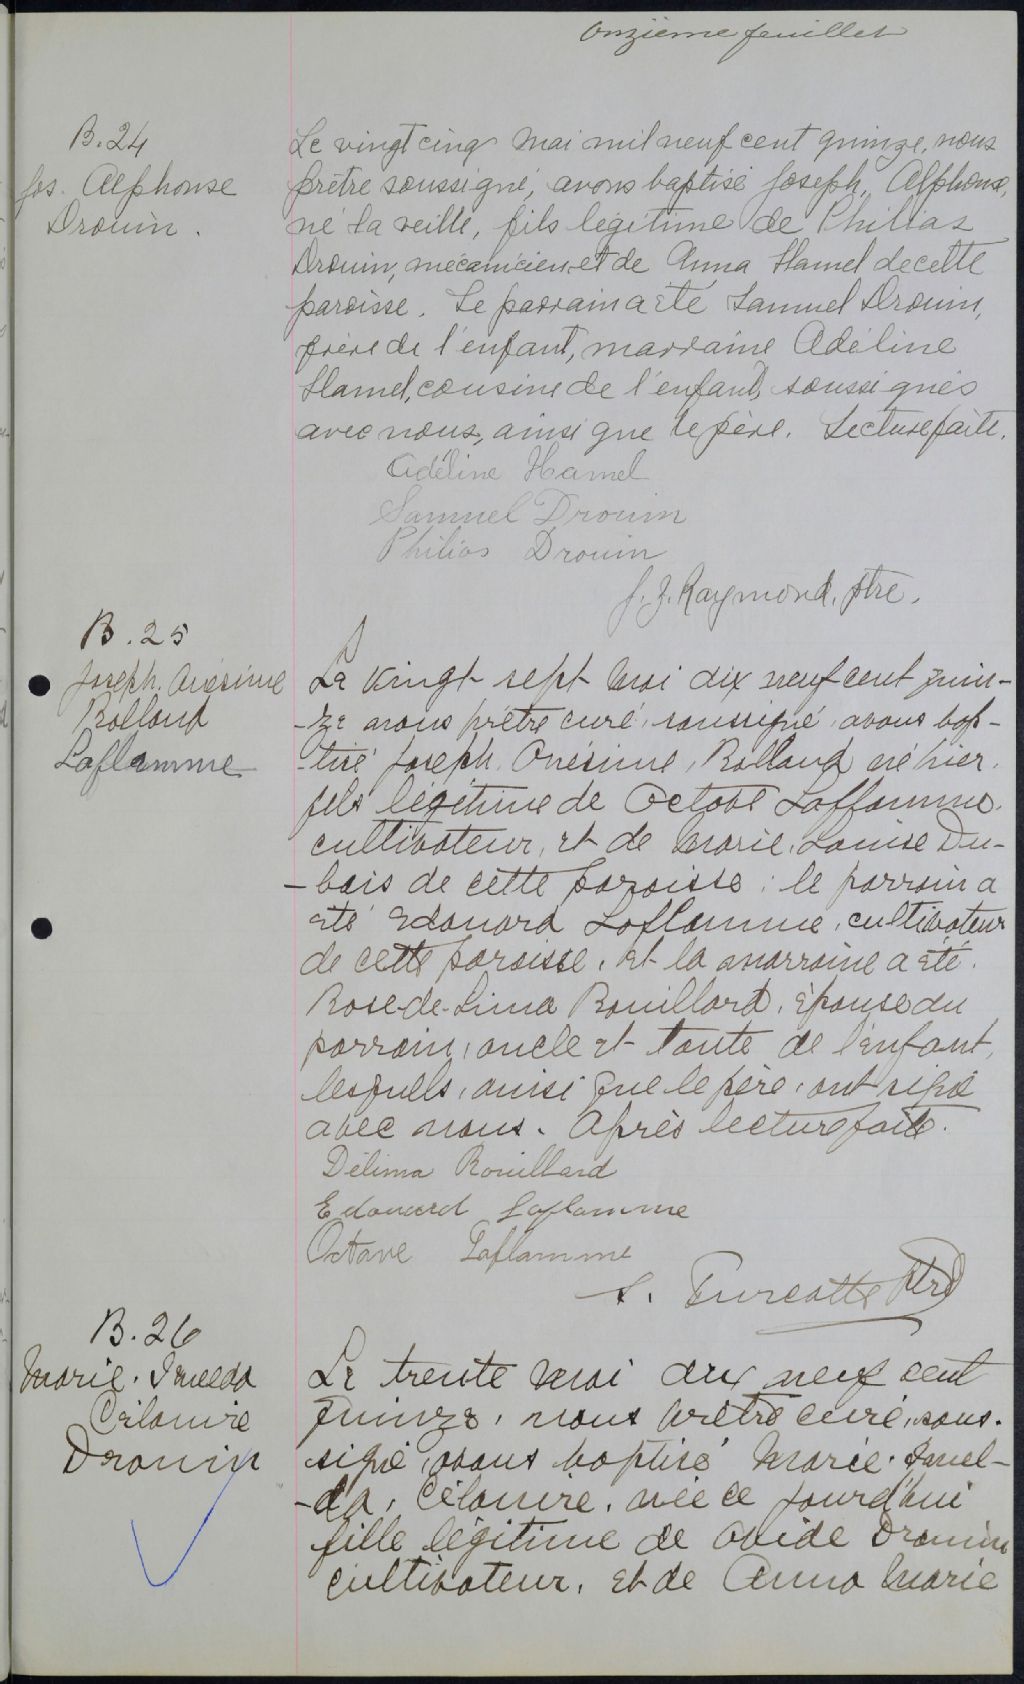 Onzième feuillet
B. 24
Jos. Alphonse
Drouin.
Le vingt cinq Mai mil neuf cent quinze, nous
prêtre soussigné, avons baptisé Joseph, Alphonse,
né la veille, fils légitime de Philias
Drouin, mécanicien, et de Anna Hamel de cette
paroisse. Le parrain a été Samuel Drouin,
frère de l'enfant, marraine Adéline
Hamel, cousine de l'enfant, soussignés
avec nous, ainsi que le père. Lecture faite.
Adéline Hamel
Samuel Drouin
Philias Drouin
J. Z. Raymond, ptre.
B. 25
Joseph. Onésime
Rolland
Laflamme
Le vingt-sept Mai dix neuf cent quin-
-ze nous prêtre curé, soussigné, avons bap-
-tisé Joseph, Onésime, Rolland né hier.
fils légitime de Octave Laflamme.
cultivateur, et de Marie, Louise Du-
-bois de cette paroisse : le parrain a
été Edouard Laflamme, cultivateur
de cette paroisse, et la marraine a été.
Rose-de-Lima Rouillard, épouse du
parrain, oncle et tante de l'enfant,
lesquels, ainsi que le père, ont signé
avec nous. Après lecture faite.
Délima Rouillard
Edouard Laflamme
Octave Laflamme
Turcotte Ptre
B. 26
Marie. Imelda
Célanire
Drouin
Le trente Mai dix neuf cent
quinze, nous prêtre curé, sous-
signé, avons baptisé Marie. Imel-
-da, Célanire, née ce jourd'hui
fille légitime de Ovide Drouin
cultivateur, et de Anna Marie